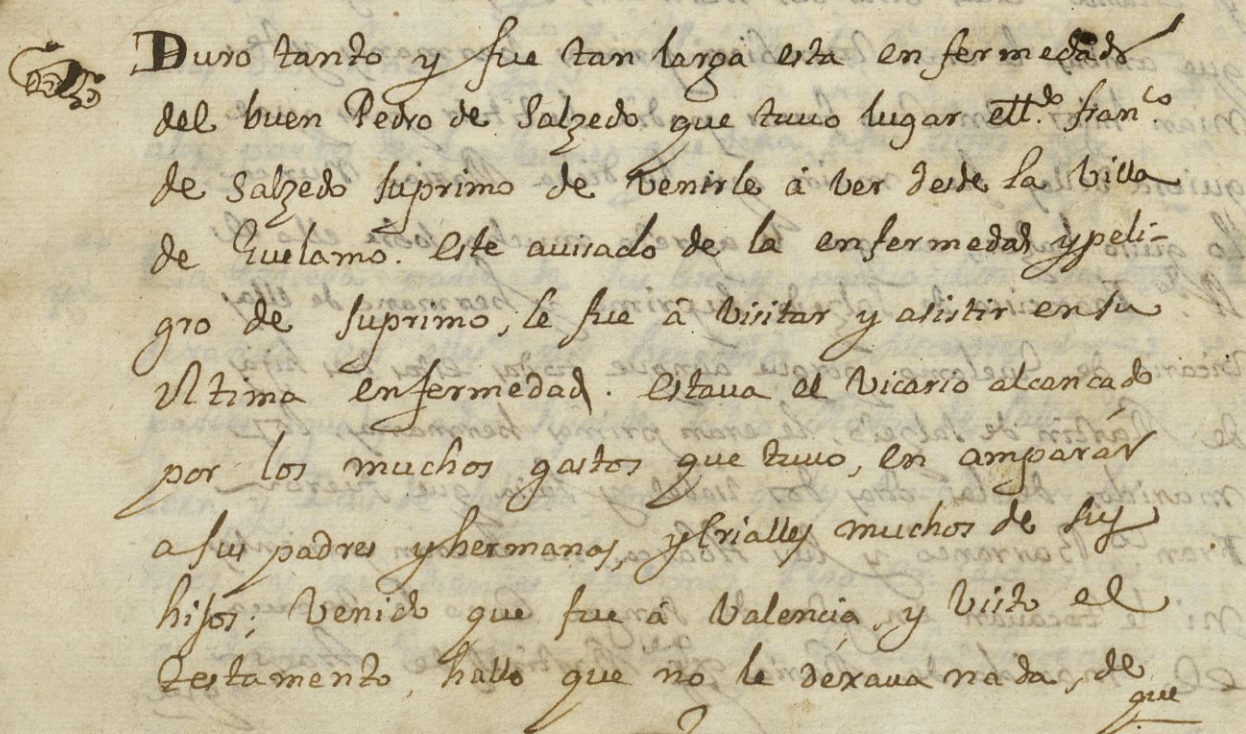 Duro tanto y fue tan larga esta enfermedad
del buen Pedro de Salzedo que tuuo lugar ell.do fran.co
de Salzedo suprimo de venirle á ver desde la Villa
de Huelamo. este auisado de la enfermedad, ypeli-
gro de suprimo, le fue â visitar y asistir ensu
vltima enfermedad. estaua el vicario alcancado
por los muchos gastos que tuuo, en amparár
a sus padres yhermanos, ycrialles muchos de sus
hijos; venido que fue á Valencia, y visto el
testamento, hallo que no le dexaua nada, de
que